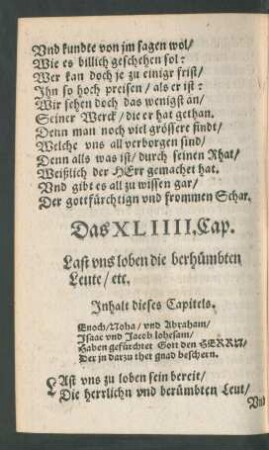 Vnd kundte von jm sagen wol/
Wie es billich geschehen sol:
Wer kan doch je zu einigr frist/
Ihn so hoch preisen/ als er ist:
Wir sehen doch das wenigst an/
Seiner Werck/ die er hat gethan.
Denn man noch viel grössere findt/
Welche vns all verborgen sind/
Denn alls was ist/ durch seinen Rhat/
Weißlich der HErr gemachet hat.
Vnd gibt es all zu wissen gar/
Der gottfürchtign vnd frommen Schar.
Das XLIIII. Cap.
Last vns loben die berhümbten
Leute/ etc.
Inhalt dieses Capitels.
Enoch/ Noha/ vnd Abraham/
Isaac vnd Jacob lobesam/
Haben gefürchtet Gott den HERRN/
Der jn darzu thet gnad beschern.
LAst vns zu loben sein bereit/
Die herrlichn vnd berümbten Leut/
Vnd